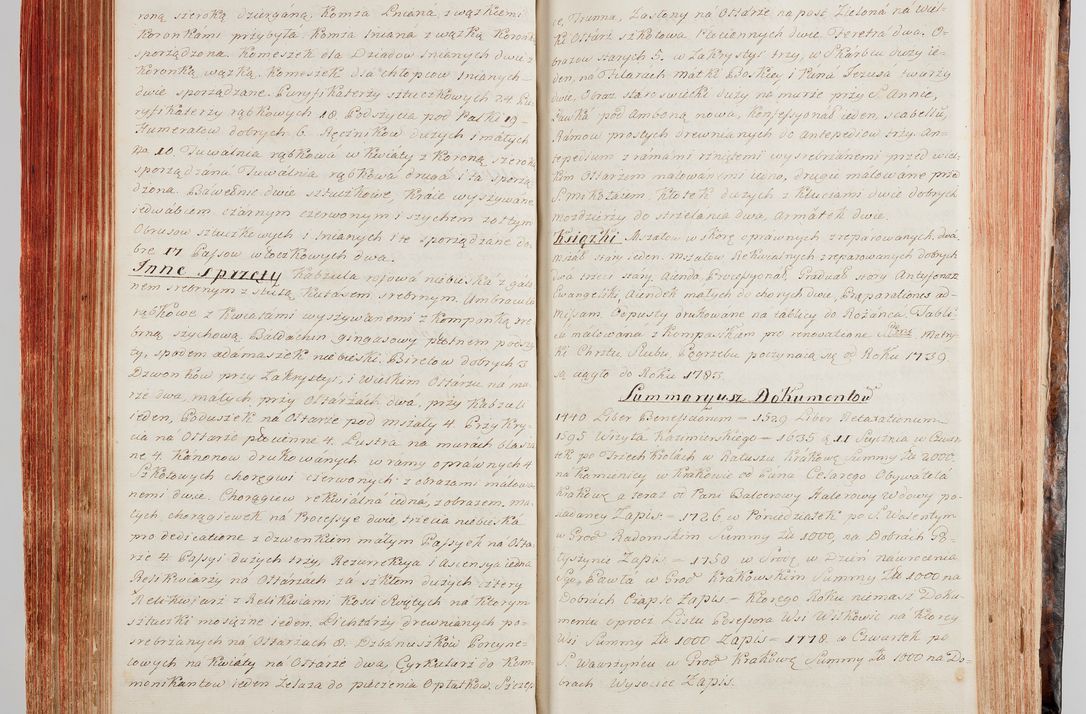 roną szeroką dziergáną, Komża Lnianá, z wązkiemi
Koronkami przybyta. Komża Lniana z wązką Koronką
sporządzona. Komeszek dla Dziadow Lnianych dwie z
Koronką wązką. Komeszek dla chłopcow Lnianych
dwie sporządzane. Puryfikaterzy sztuczkowych 24 Pu
ryfikaterzy rąbkowych 18 Podszycia pod Palki 19 –
Humerałow dobrych 6. Ręcznikow dużych i małych
No 10. Tuwalnia rąbkowá w kwiáty z Koroną szeroką
sporządzana Tuwalnia rąbkowa druga i ta sporzą
dzona. Bawełnic dwie sztuczkowe, Kráie wyszywane
iedwabiem czárnym czerwonym i szychem żołtym
Obrusow sztuczkowych i Lnianych i te sporządzane do
bre 17 Passow włoczkowych dwa.
Inne Sprzęty Kabzula ryżowa niebieská z galo
nem srebrnym z stułą, kutásem srebrnym. Umbraculá
rąbkowe z kwiatami wyszywanemi z Kompanką sre
brną szychową. Báldáchin gingásowy płotnem podszy
ty, spodem adámászek niebieski. Biretow dobrych 3
Dzwonkow przy Zakrystyi, i wielkim Ołtarzu na mu
rze dwa, małych przy Ołtarzách dwá, przy Kabzuli
ieden, Poduszek na Ołtarze pod mszały 4 Przykry
cia na Ołtarze płocienne 4. Lustra na murach blasza
ne 4. Kanonow drukowanych w rámy oprawnych 4
Szkołowych chorągwi czerwonych z obrazami malowa
nemi dwie. Chorągiew rekwialna iedna, z obrazem, ma
łych chorągiewek ná Processye dwie, trzecia niebieská
pro dedicatione z dzwonkiem małym Passyek ná Ołta
rze 4. Passyi dużych trzy, Rezurrekcya i Ascensya iedna
Relikwiarzy na Ołtarzach za szkłem dużych cztery
Relikwiarz z Relikwiami Kości Swiętych ná Ktorym
sztuczki mosiężne ieden. Lichtárzy drewnianych po
srebrzanych na Ołtarzach 8. Dzbánuszkow Porcyne
lowych na Kwiáty ná Ołtarze dwa, Cyrkularz do Kom
monikantow ieden Zelaza do pieczenia Opłatkow, Szczyp
ce, Trunna, Zasłony na Ołtarze na post Zielona na Wiel
ki Ołtarz szkołowa Płociennych dwie. Feretra dwa. O
brazow starych 5. w Zakrystyi trzy, w Skarbcu duży ie
den, na Filarach matki Boskiey i Pana Jezusa twarzy
dwie, Obraz staroswiecki duży na murie przy S. Annie,
Ławka pod Amboną nowa, Konfessyonał ieden, scabellu,
Rámow prostych drewnianych do antepediow trzy. An
tepedium z rámami rzniętemi wysrebrzánemi przed wiel
kim Ołtarzem malowanemi iedno, drugie malowane prze
S. mikołaiem, Kłotek dużych z Kluczami dwie dobrych
mozdzierzy do strzelánia dwa, Armatek dwie.
Książki Mszałow w skorę oprawnych zreparowanych dwá
mszał stary ieden. Mszałow Rekwialnych zreparowanych dobrych
dwá stary, Aiendo Processyonał Graduał story Antyfonarz
Ewangeliski Aiendek małych do chorych dwie, Praparationes ad
Missam. Odpusty drukowane na tablicy do Rożánca. Tabli
ca malowána z Kompaskiem pro renovatione SSmi. Metry
ki Chrztu Slubu Pogrzebu poczynaią się od Roku 1739
są ciągło do Roku 1783.
Summaryusz Dokumentow
1440 Liber Beneficiorum – 1529 Liber Retaxationum
1595 Wizyta Kazimirskiego – 1635 d 11 Stycznia w Czwar
tek po Trzech Krolách w Ratuszu Krakow: Summy Złł 2000,
na Kamienicy w Krakowie od Pana Celarego Obywatela
Krakow: a teraz od Pani Balcerowy Halerowy Wdowy po
siadaney Zapis – 1726 w Poniedziałek po S. Walentym
w Grod Radomskim Summy Złł 1000, na Dobrach Po
tyczynie Zapis – 1758 w Srodę w Dzień nawrocenia
Sgo Pawła w Grod Krákowskim Summy Złł 1000 na
Dobrách Czaple Zapis – Ktorego Roku niemasz Doku
mentu oprocz Listu Possessora Wsi Wilkowic na Ktorey
Wsi Summy Złł 1000 Zapis – 1778 w Czwartek po
S. Wawrzyńcu w Grod Krakow: Summy Złł 1000 na Do
brach Wysocice Zapis.